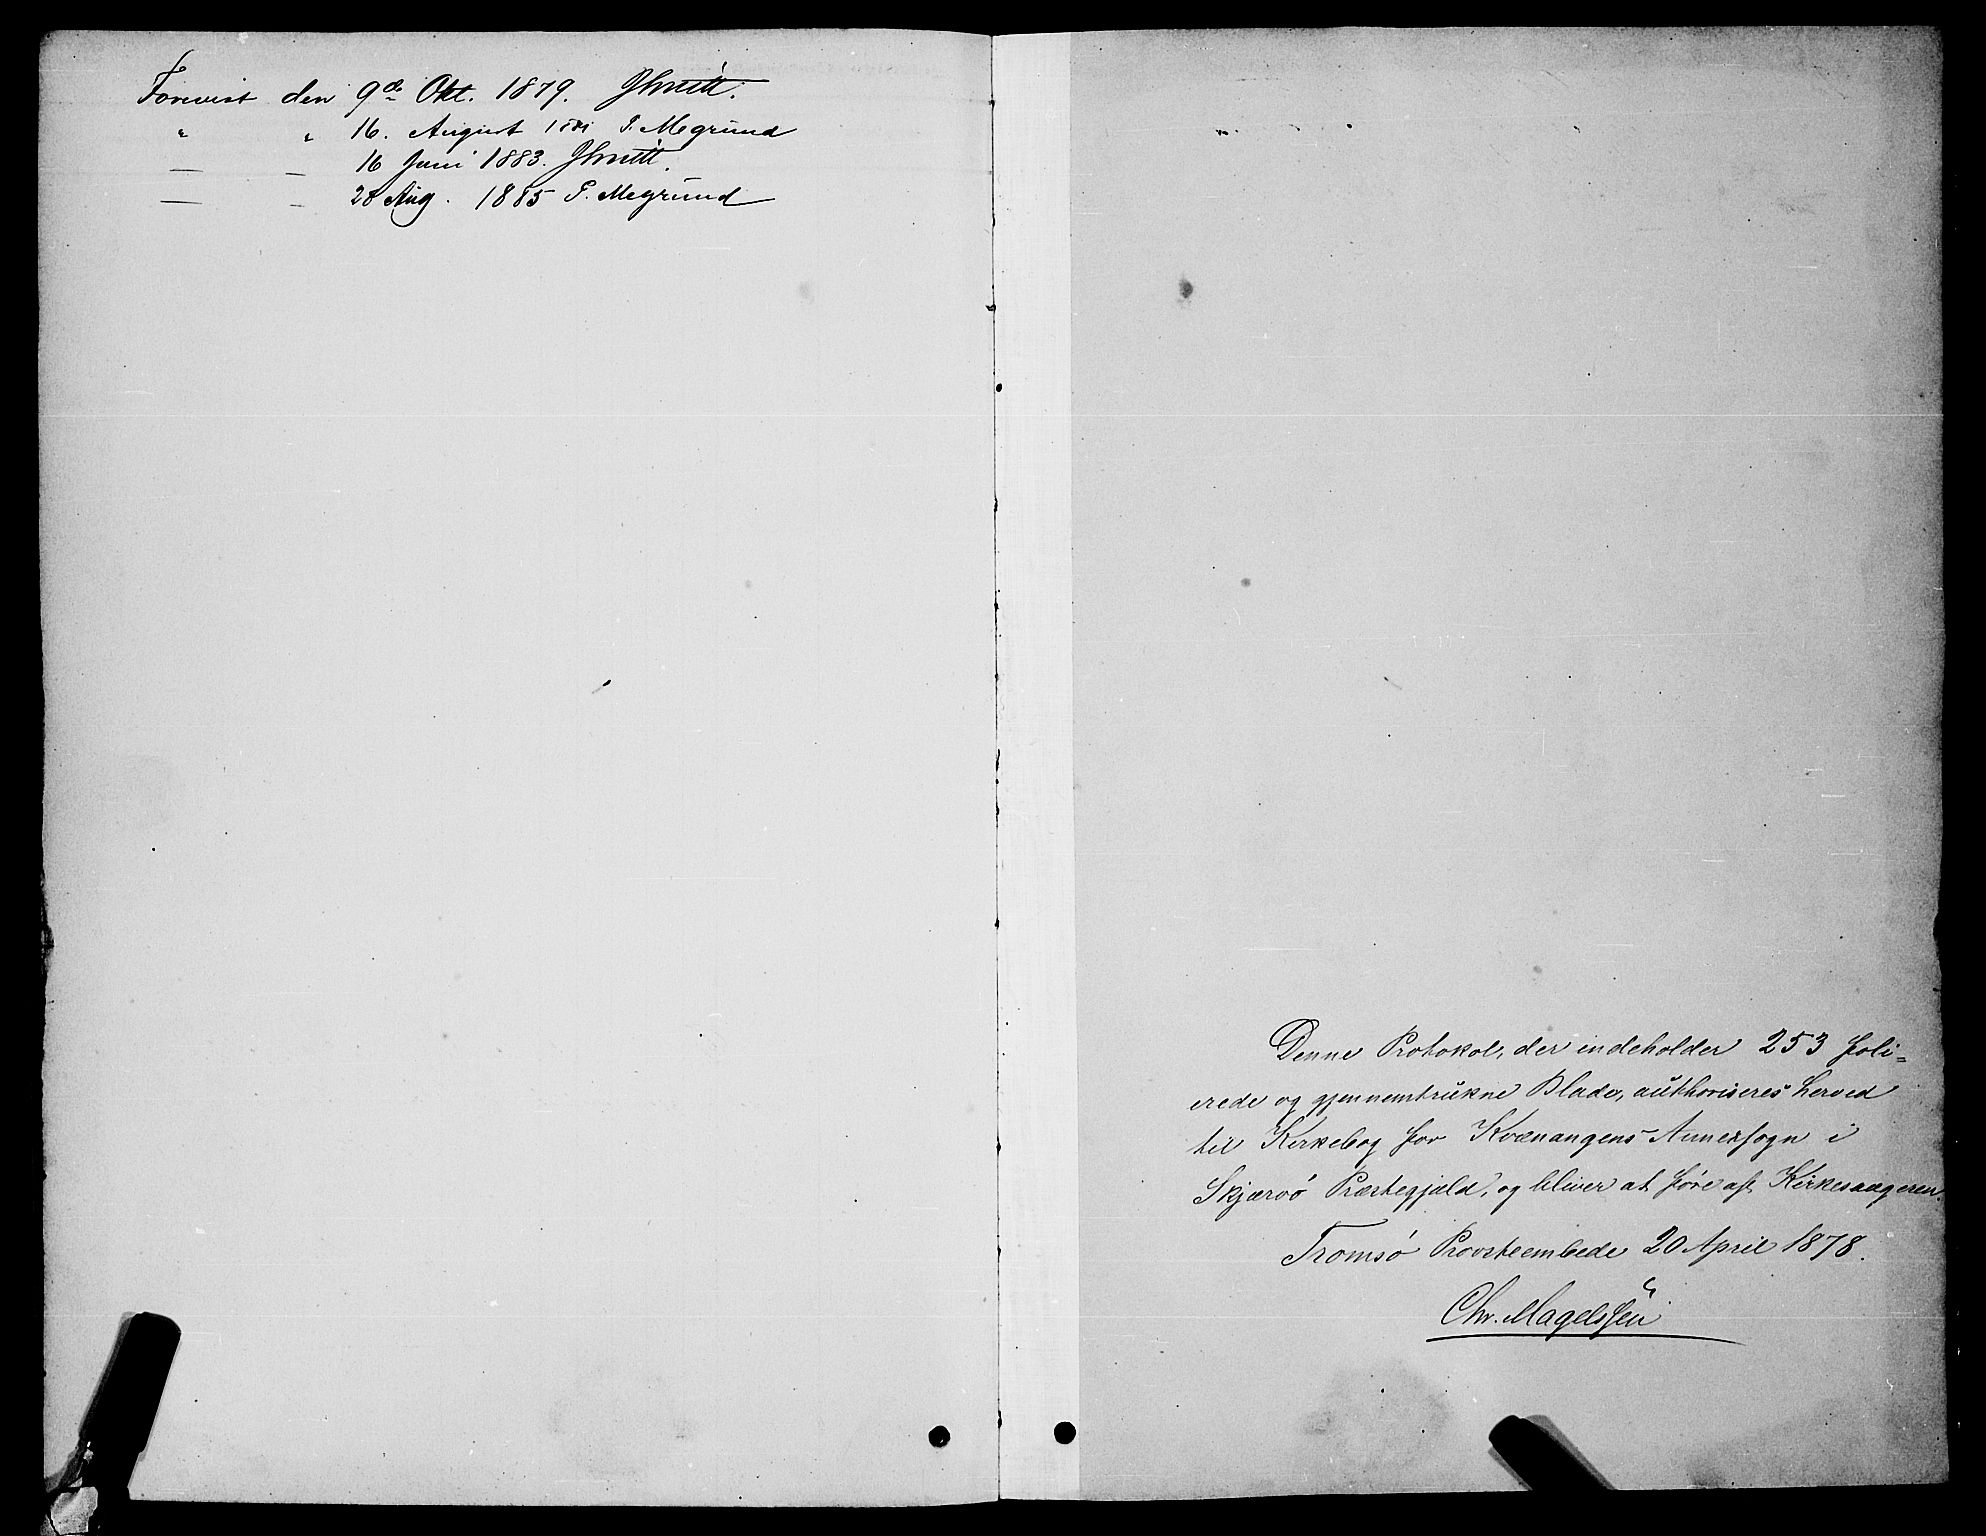 Forevist den 9de Okt. 1879. JSmitt.
" " 16. August 1881 P. Megrund
— — 16 Juni 1883. JSmitt.
— — 28 Aug. 1885 P. Megrund
Denne Protokol, der indeholder 253 foli=
erede og gjennemtrukne Blade, authoriseres herved
til Kirkebog for Kvænangens Annexsogn i
Skjærvö Præstegjæld, og bliver at före af Kirkesangeren.
Tromsö Provsteembede 20 April 1878.
Chr. Magelssen